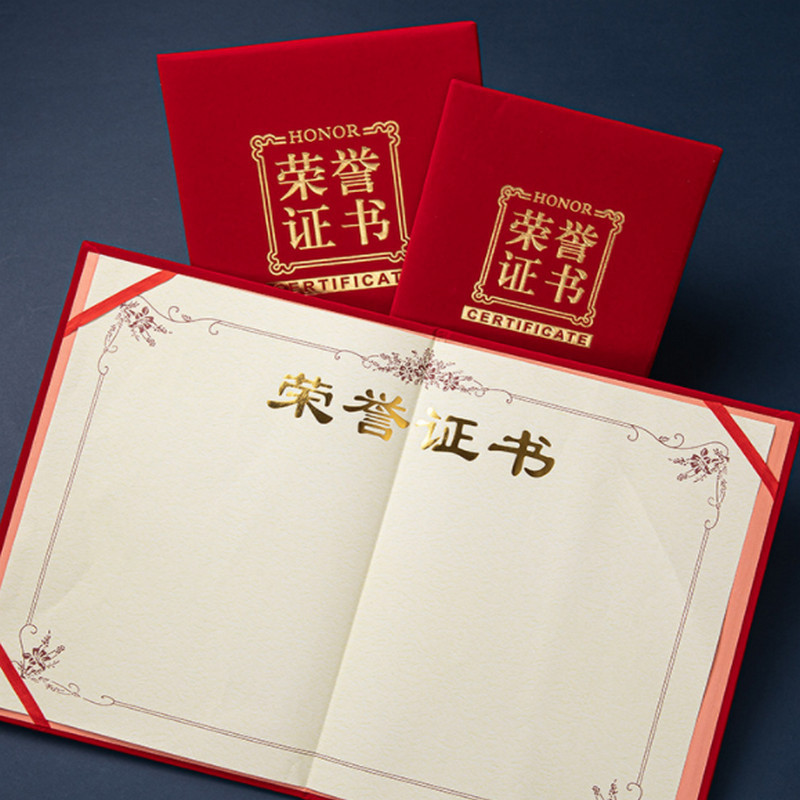 HONOR
荣誉
证书
CERTIFICATE
HONOR
荣誉
证书
CERTIFICATE
荣誉证书